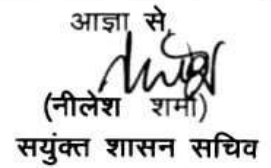 आज्ञा से,
(नीलेश शर्मा)
सयुंक्त शासन सचिव